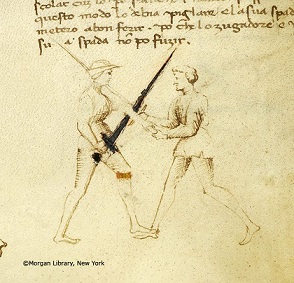 scolar
questo modo lo debia pigliare e la sua spad
metero a bon ferir. Po che lo zugadore
su a spada no po fuzir.
©Morgan Library, New York